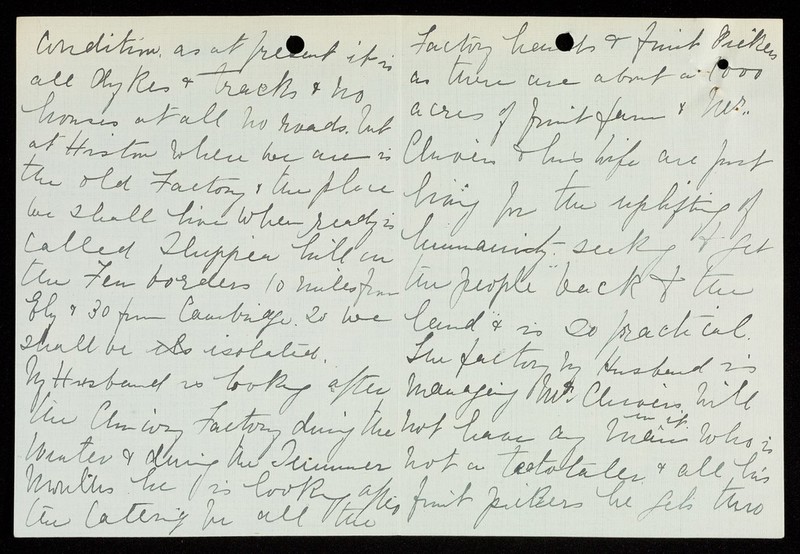 Condition, as at present it is
all Dykes & tracks & no
houses at all no roads. but
at Histon where we are is
the old Factory & the place
we shall live when ready is
called Shippea hill on
the Fen borders 10 miles from
Ely & 30 from Cambridge. So we
shall be isolated.
My Husband is looking after
the Chivers Factory during the
Winter & during the Summer
Months he is looking after
the Catering for all the
Factory hands & fruit Pickers
as there are about a 1000
acres of fruit farm & Mr.
Chivers & his wife are just
living for the uplifting of
humanity. seeking to get
the people "back to the
land" & is so practical.
The factory my Husband is
managing Mr Chivers will
not have any man in it who is
not a teetotaler & all his
fruit pickers he gets thro